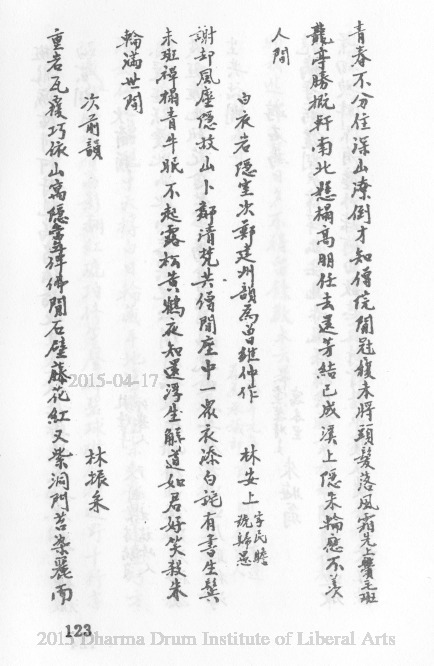 青春不分住深山潦倒才知傳院閒冠履未將頭髮落風霜先上鬢毛斑
龍亭勝概軒南北懸榻高朋任去還芳結已成溪上隱朱輪應不羨
人間
白衣岩隱室次鄭建州韻為曾繼仲作 林安上 字民瞻 號歸愚
謝却風塵隱故山卜鄰清梵共僧閒座中一衆衣添白詫有書生鬢
未斑禪榻青牛眠不起露松黃鶴夜知還浮生解道如君好笑殺朱
輪滿世間
次前韻 林振采
重岩瓦覆巧依山高隱 伴佛閒石壁藤花紅又紫洞門苔染麗而
2015-04-17
123
2015 Dharma Drum Institute of Liberal Arts